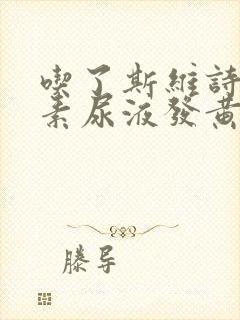 喫了斯維詩
素尿液發黃
滕导